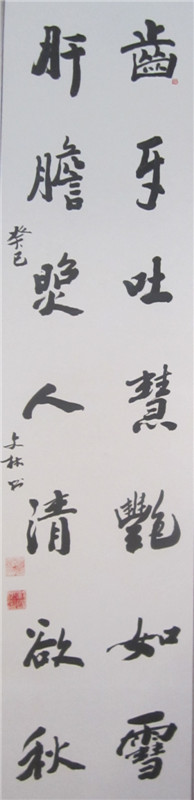 齒牙吐慧艷如雪
肝膽照人清欲秋
癸巳
文林书